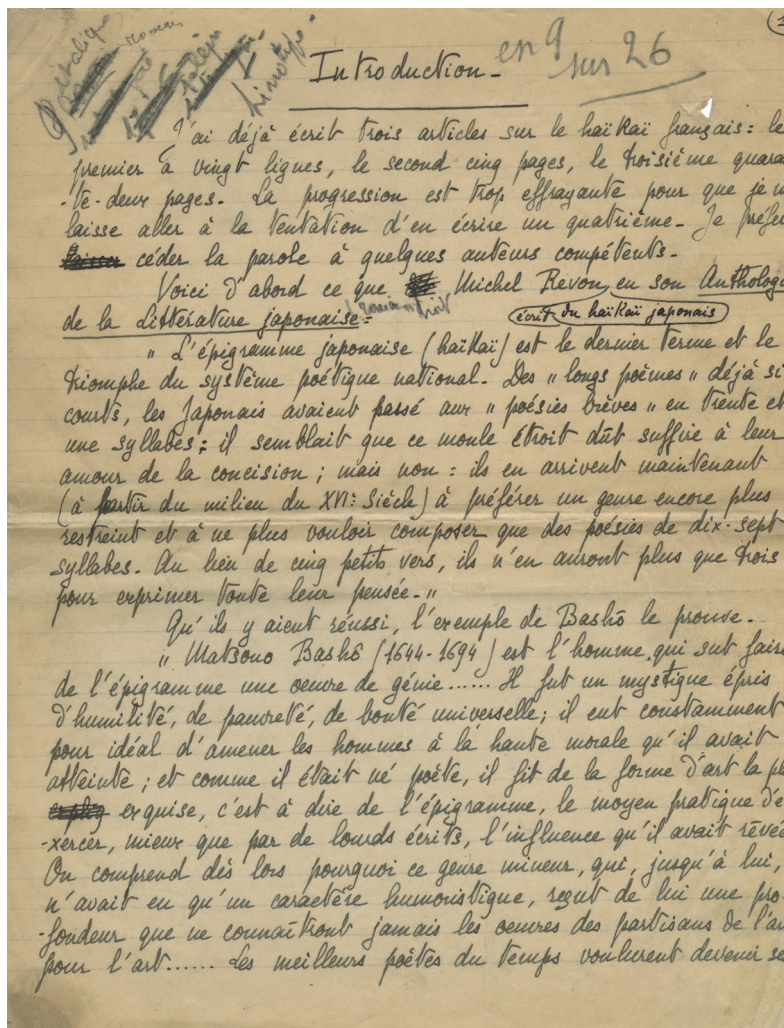 italique romain
linotype
1
en 9 sur 26
Introduction_
J'ai déjà écrit trois articles sur le haïkaï français : le
premier a vingt lignes, le second cinq pages, le troisième quaran
-te-deux pages. La progression est trop effrayante pour que je m
laisse aller à la tentation d'en écrire un quatrième_ Je préfèr
céder la parole à quelques auteurs compétents_
Voici d'abord ce que Michel Revon, en son Anthologi
de la Littérature japonaise : romain droit écrit du haïkaï japonais
" L'épigramme japonaise (haïkaï) est le dernier terme et le
triomphe du système poétique national_ Des " longs poèmes " déjà si
courts, les Japonais avaient passé aux " poésies brèves " en trente et
une syllabes ; il semblait que ce moule étroit dût suffire à leur
amour de la concision ; mais non : ils en arrivent maintenant
(à partir du milieu du XVIe Siècle) à préférer un genre encore plus
restreint et à ne plus vouloir composer que des poésies de dix-sept
syllabes_ Au lieu de cinq petits vers, ils n'en auront plus que trois
pour exprimer toute leur pensée_ "
Qu'ils y aient réussi, l'exemple de Bashô le prouve_
" Matsouo Bashô (1644-1694) est l'homme qui sut faire
de l'épigramme une oeuvre de génie...... Il fut un mystique épris
d'humilité, de pauvreté, de bonté universelle ; il eut constamment
pour idéal d'amener les hommes à la haute morale qu'il avait
atteinte ; et comme il était né poète, il fit de la forme d'art la pl
exquise, c'est à dire de l'épigramme, le moyen pratique d'e
-xercer, mieux que par de lourds écrits, l'influence qu'il avait rêvée
On comprend dès lors pourquoi ce genre mineur, qui, jusqu'à lui,
n'avait eu qu'un caractère humoristique, reçut de lui une pro
-fondeur que ne connaîtront jamais les oeuvres des partisans de l'ar
pour l'art...... Les meilleurs poètes du temps voulurent devenir se